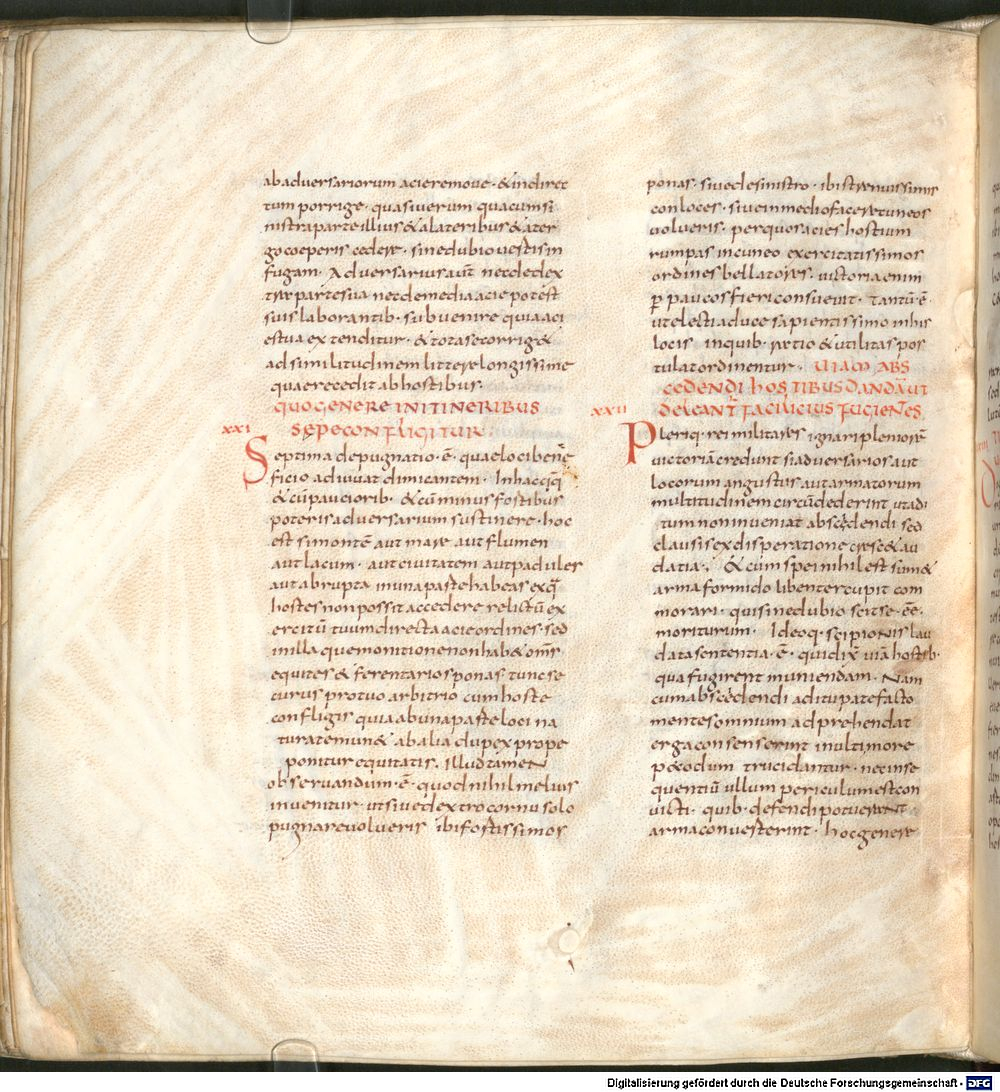 abadversariorum acieremove · &indirec
tum porrige · quasiverum quacumsi
nistraparte illius & alateribus & ater
gocoeperis cedere · sinedubiovertisin
fugam · Adversarius aut̄ necdedex
tra partesua necdemedia acie potest
suis laborantib · subvenire quia aci
es tua extenditur · & tota se corrig&
adsimilitudinem litterae longissime
quae recedit abhostibus ·
QUOGENERE INITINERIBUS
SEPE CONFLIGITUR
XXI
Septima depugnatio · ē · quae loci bene
ficio adiuvat dimicantem · Inhac q̄q̄
& cū pauciorib · & cū minus fortibus
poteris adversarium sustinere · hoc
est si montē aut mare aut flumen
aut lacum · aut civitatem aut padules
aut abrupta inuna parte habeas ex q̄
hostes non possit accedere relictū ex
ercitū tuum directa acie ordines · sed
inilla quemonitione non hab& om̄s
equites & ferentarios ponas tunc se
curus pro tuo arbitrio cum hoste
confligis quia abuna parte loci na
tura temun& abalia dupex prope
ponitur equitatis · Illud tamen
observandum · ē · quod nihil melius
invenitur · ut sive dextro cornu solo
pugnare volueris ibi fortissimos
ponas · sive de sinistro · ibi strenuissimis
conloces · sive inmedio facere cuneos
volueris · per quos acies hostium
rumpas incuneo exercitatissimos
ordines bellatores · victoria enim
p̱ paucos fieri consuevit · Tantū ē ·
ut electi a duce sapientissimo inhis
locis inquib · ratio & utilitas pos
tulat ordinentur · UIAM ABS
CEDENDI HOSTIBUS DANDĀ UT
XXII
DELEANT̄ FACILICIUS FUGIENTES
Pleriq · rei militares ignari pleniorē
victoriā credunt si adversarios aut
locorum angustus aut armatorum
multitudinem circūdederint ut adi
tum non inveniat abscedendi sed
clausis ex disperatione cresc& au
datia · & cum spei nihil est sum&
arma formido libenter cupit com
morari · qui sinedubio scit se · ēē ·
moriturum · Ideoq · scipionis lau
data sententia · ē · qui dix̄ viā hostib ·
qua fugirent muniendam · Nam
cum abscedendi aditu patefacto
mentes omnium ad prehendat
erga consenserint inulti more
pecodum trucidantur · nec inse
quentiū ullum periculum est con
victi · quib · defendi potuerant
arma converterint · hoc genere